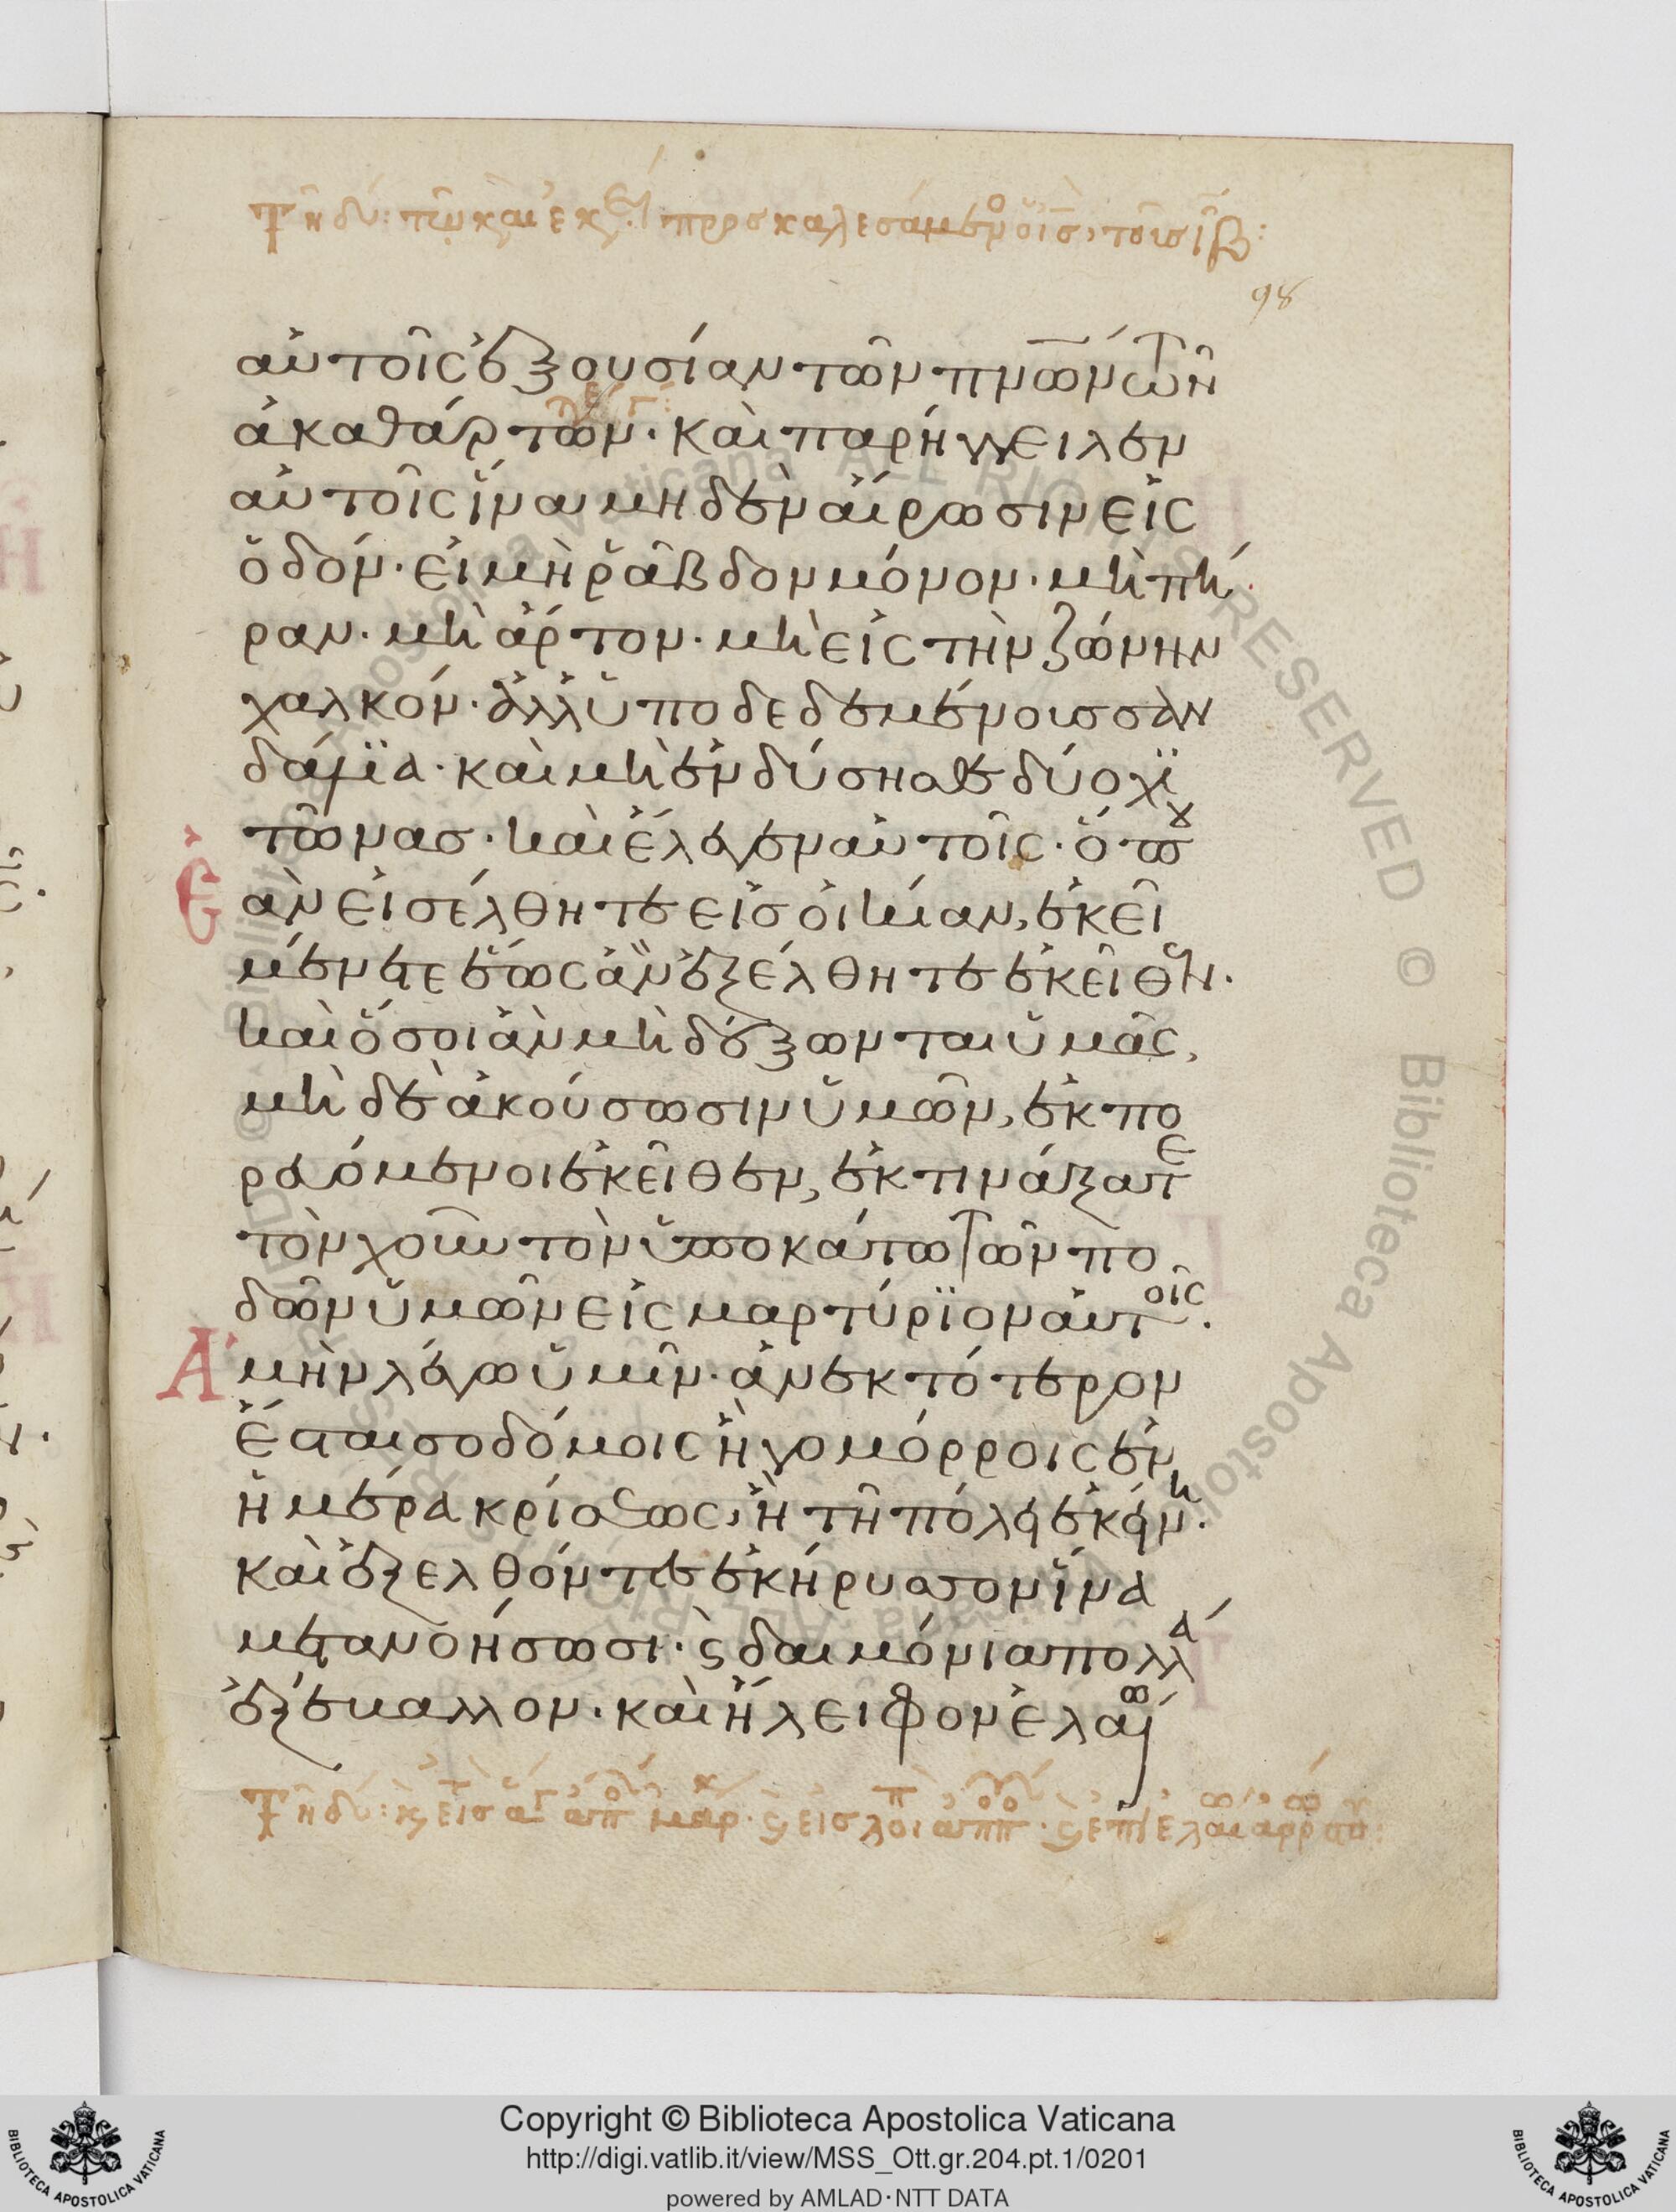 98
αὐτοῖς ἐξουσίαν τῶν πνῶν τῶν
ἀκαθάρτων· καὶ παρήγγειλεν
αὐτοῖς ἵνα μηδὲν αἴρωσιν εἰς
ὁδόν· εἰ μὴ ῥάβδον μόνον· μὴ πή
ραν· μὴ ἄρτον· μὴ εἰς τὴν ζώνην
χαλκόν· ἀλλ ὑποδεδεμένοις σαν
δάλϊα· καὶ μὴ ἐνδύσησθε δύο χϊ
τῶνας· καὶ ἔλεγεν αὐτοῖς· ὅπου
ἐὰν εἰσέλθητε εἰς οἰκίαν, ἐκεῖ
μένετε ἕως ἂν ἐξέλθητε ἐκεῖθεν.
καὶ ὅσοι ἂν μὴ δέξωνται ὑμᾶς,
μὴ δὲ ἀκούσωσιν ὑμῶν, ἐκπο
ρευόμενοι ἐκεῖθεν, ἐκτινάξατε
τὸν χοῦν τὸν ὑποκάτω τῶν πο
δῶν ὑμῶν εἰς μαρτύρϊον αὐτοῖς.
Ἀμὴν λέγω ὑμῖν· ἀνεκτότερον
ἔσται σοδόμοις ἢ γομόρροις ἐν
ἡμέρα κρίσεως, ἢ τῆ πόλει ἐκείνη.
καὶ ἐξελθόντες ἐκήρυσσον ἵνα
μετανοήσωσι· ϛ δαιμόνια πολλά
ἐξέβαλλον· καὶ ἤλειφον ἐλαίω
Copyright © Biblioteca Apostolica Vaticana
http://digi.vatlib.it/view/MSS_Ott.gr.204.pt.1/0201
powered by AMLAD·NTT DATA
BIBLIOTECA APOSTOLICA VATICANA
BIBLIOTECA APOSTOLICA VATICANA